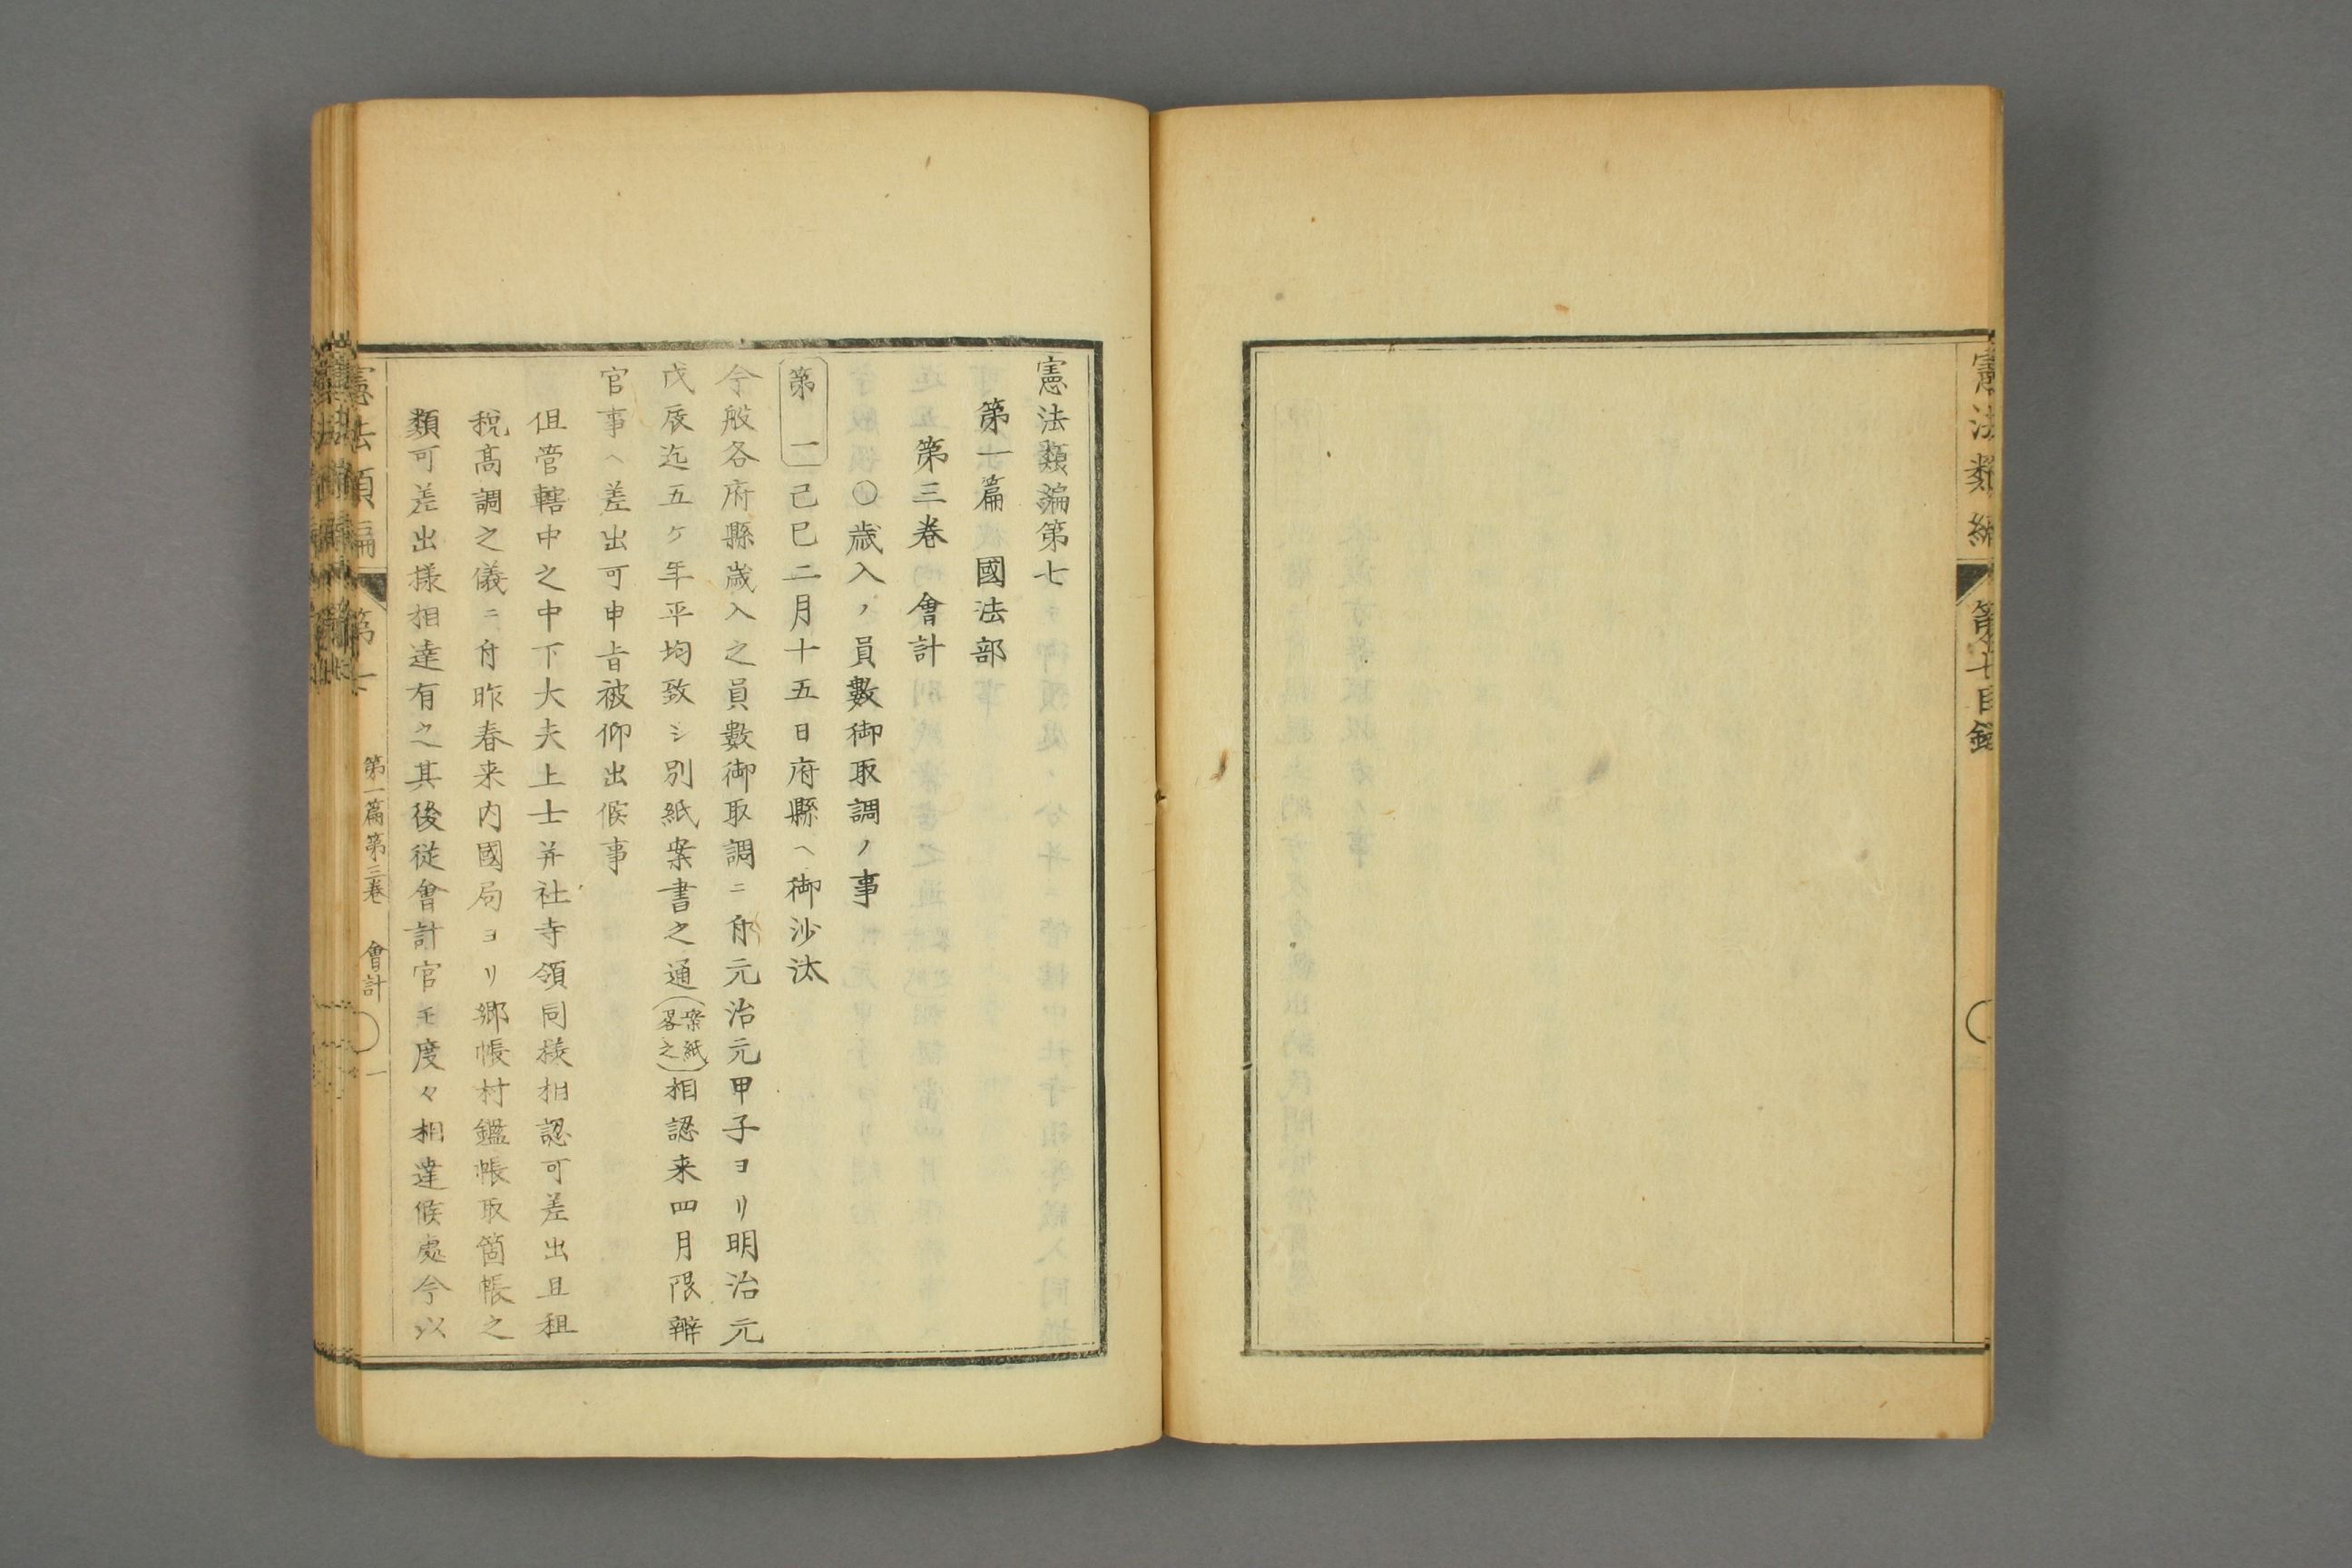 憲法類編
第七目錄
憲法類編第七
第一篇 國法部
第三卷 會計
○歲入ノ員數御取調ノ事
第一 己巳二月十五日府縣ヘ御沙汰
今般各府縣歲入之員數御取調ニ付元治元甲子ヨリ明治元
戊辰迄五ケ年平均致シ別紙案書之通(案紙畧之)相認来四月限辨
官事ヘ差出可申旨被仰出候事
但管轄中之中下大夫上士并社寺領同樣相認可差出且租
稅高調之儀ニ付昨春来内國局ヨリ鄉帳村鑑帳取箇帳之
類可差出樣相達有之其後從會計官モ度々相達候處今以
憲法類編
第七
第一篇第三卷 會計
一